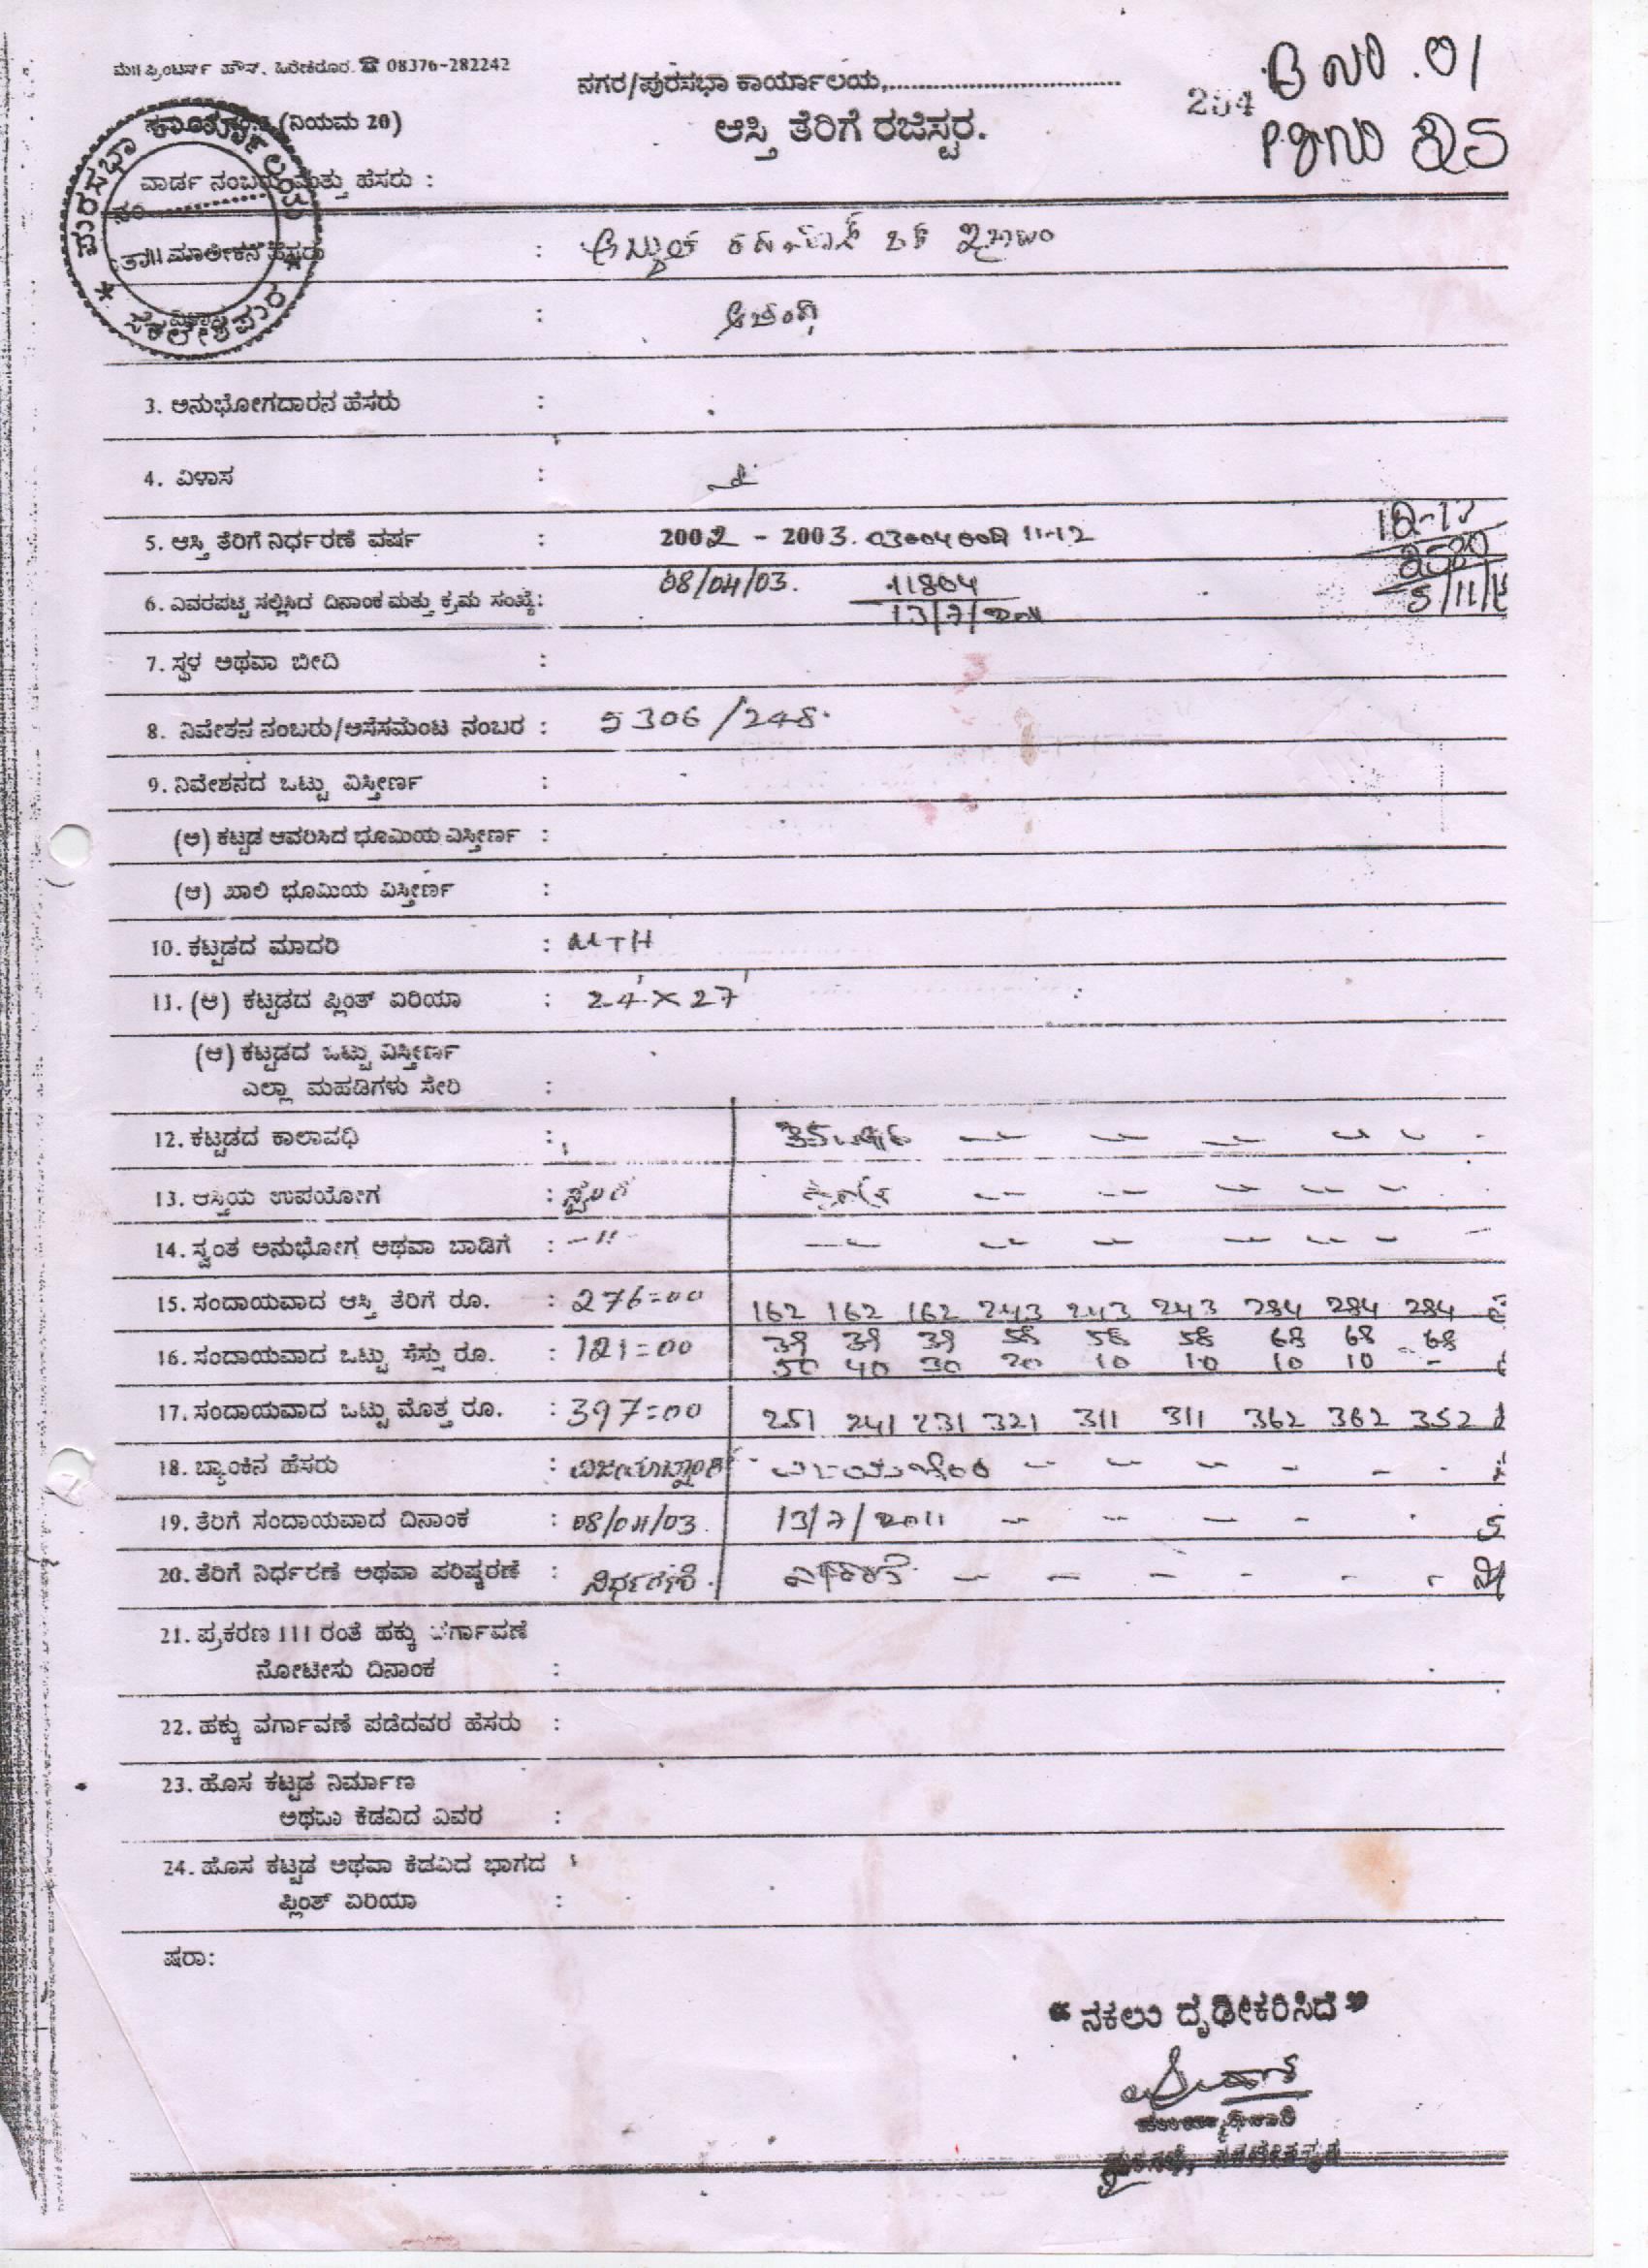 ಮ॥ ಪ್ರಿಂಟರ್ಸ್ ಹೌಸ್, ಹಿರೇಕೆರೂರ. ☎ 08376-282242
ನಗರ/ಪುರಸಭಾ ಕಾರ್ಯಾಲಯ,
B NO .01
254
(ನಿಯಮ 20)
ಆಸ್ತಿ ತೆರಿಗೆ ರಜಿಸ್ಟರ.
PGNO 25
ವಾರ್ಡ ನಂಬರು ಮತ್ತು ಹೆಸರು :
ಪುರಸಭಾ ಕಾರ್ಯಾಲಯ
ಸಕಲೇಶಪುರ
ಮಾಲೀಕನ ಹೆಸರು :
:
3. ಅನುಭೋಗದಾರನ ಹೆಸರು :
4. ವಿಳಾಸ :
5. ಆಸ್ತಿ ತೆರಿಗೆ ನಿರ್ಧರಣೆ ವರ್ಷ : 2002 - 2003. 11-12
6. ವಿವರಪಟ್ಟಿ ಸಲ್ಲಿಸಿದ ದಿನಾಂಕ ಮತ್ತು ಕ್ರಮ ಸಂಖ್ಯೆ: 08/04/03. 11804 13/7/2011
7. ಸ್ಥಳ ಅಥವಾ ಬೀದಿ :
8. ನಿವೇಶನ ನಂಬರು/ಅಸೆಸಮೆಂಟ ನಂಬರ : 5306/248
9. ನಿವೇಶನದ ಒಟ್ಟು ವಿಸ್ತೀರ್ಣ :
(ಅ) ಕಟ್ಟಡ ಆವರಿಸಿದ ಭೂಮಿಯ ವಿಸ್ತೀರ್ಣ :
(ಆ) ಖಾಲಿ ಭೂಮಿಯ ವಿಸ್ತೀರ್ಣ :
10. ಕಟ್ಟಡದ ಮಾದರಿ : MTH
11. (ಅ) ಕಟ್ಟಡದ ಪ್ಲಿಂತ್ ಏರಿಯಾ : 24' X 27'
(ಆ) ಕಟ್ಟಡದ ಒಟ್ಟು ವಿಸ್ತೀರ್ಣ
ಎಲ್ಲಾ ಮಹಡಿಗಳು ಸೇರಿ :
12. ಕಟ್ಟಡದ ಕಾಲಾವಧಿ :
13. ಆಸ್ತಿಯ ಉಪಯೋಗ : ಸ್ವಂತ
14. ಸ್ವಂತ ಅನುಭೋಗ ಅಥವಾ ಬಾಡಿಗೆ : -"-
15. ಸಂದಾಯವಾದ ಆಸ್ತಿ ತೆರಿಗೆ ರೂ. : 276=00 162 162 162 243 243 243 284 284 284
16. ಸಂದಾಯವಾದ ಒಟ್ಟು ಸೆಸ್ಸು ರೂ. : 121=00 39 39 39 58 58 58 68 68 68
50 40 30 20 10 10 10 10 -
17. ಸಂದಾಯವಾದ ಒಟ್ಟು ಮೊತ್ತ ರೂ. : 397=00 251 241 231 321 311 311 362 362 352
18. ಬ್ಯಾಂಕಿನ ಹೆಸರು : ವಿಜಯಾಬ್ಯಾಂಕ್
19. ತೆರಿಗೆ ಸಂದಾಯವಾದ ದಿನಾಂಕ : 08/04/03. 13/7/2011
20. ತೆರಿಗೆ ನಿರ್ಧರಣೆ ಅಥವಾ ಪರಿಷ್ಕರಣೆ : ನಿರ್ಧರಣೆ.
21. ಪ್ರಕರಣ 111 ರಂತೆ ಹಕ್ಕು ವರ್ಗಾವಣೆ
ನೋಟೀಸು ದಿನಾಂಕ :
22. ಹಕ್ಕು ವರ್ಗಾವಣೆ ಪಡೆದವರ ಹೆಸರು :
23. ಹೊಸ ಕಟ್ಟಡ ನಿರ್ಮಾಣ
ಅಥವಾ ಕೆಡವಿದ ವಿವರ :
24. ಹೊಸ ಕಟ್ಟಡ ಅಥವಾ ಕೆಡವಿದ ಭಾಗದ
ಪ್ಲಿಂತ್ ಏರಿಯಾ :
ಷರಾ:
“ನಕಲು ದೃಢೀಕರಿಸಿದೆ”
ಮುಖ್ಯಾಧಿಕಾರಿ
ಪುರಸಭೆ, ಸಕಲೇಶಪುರ